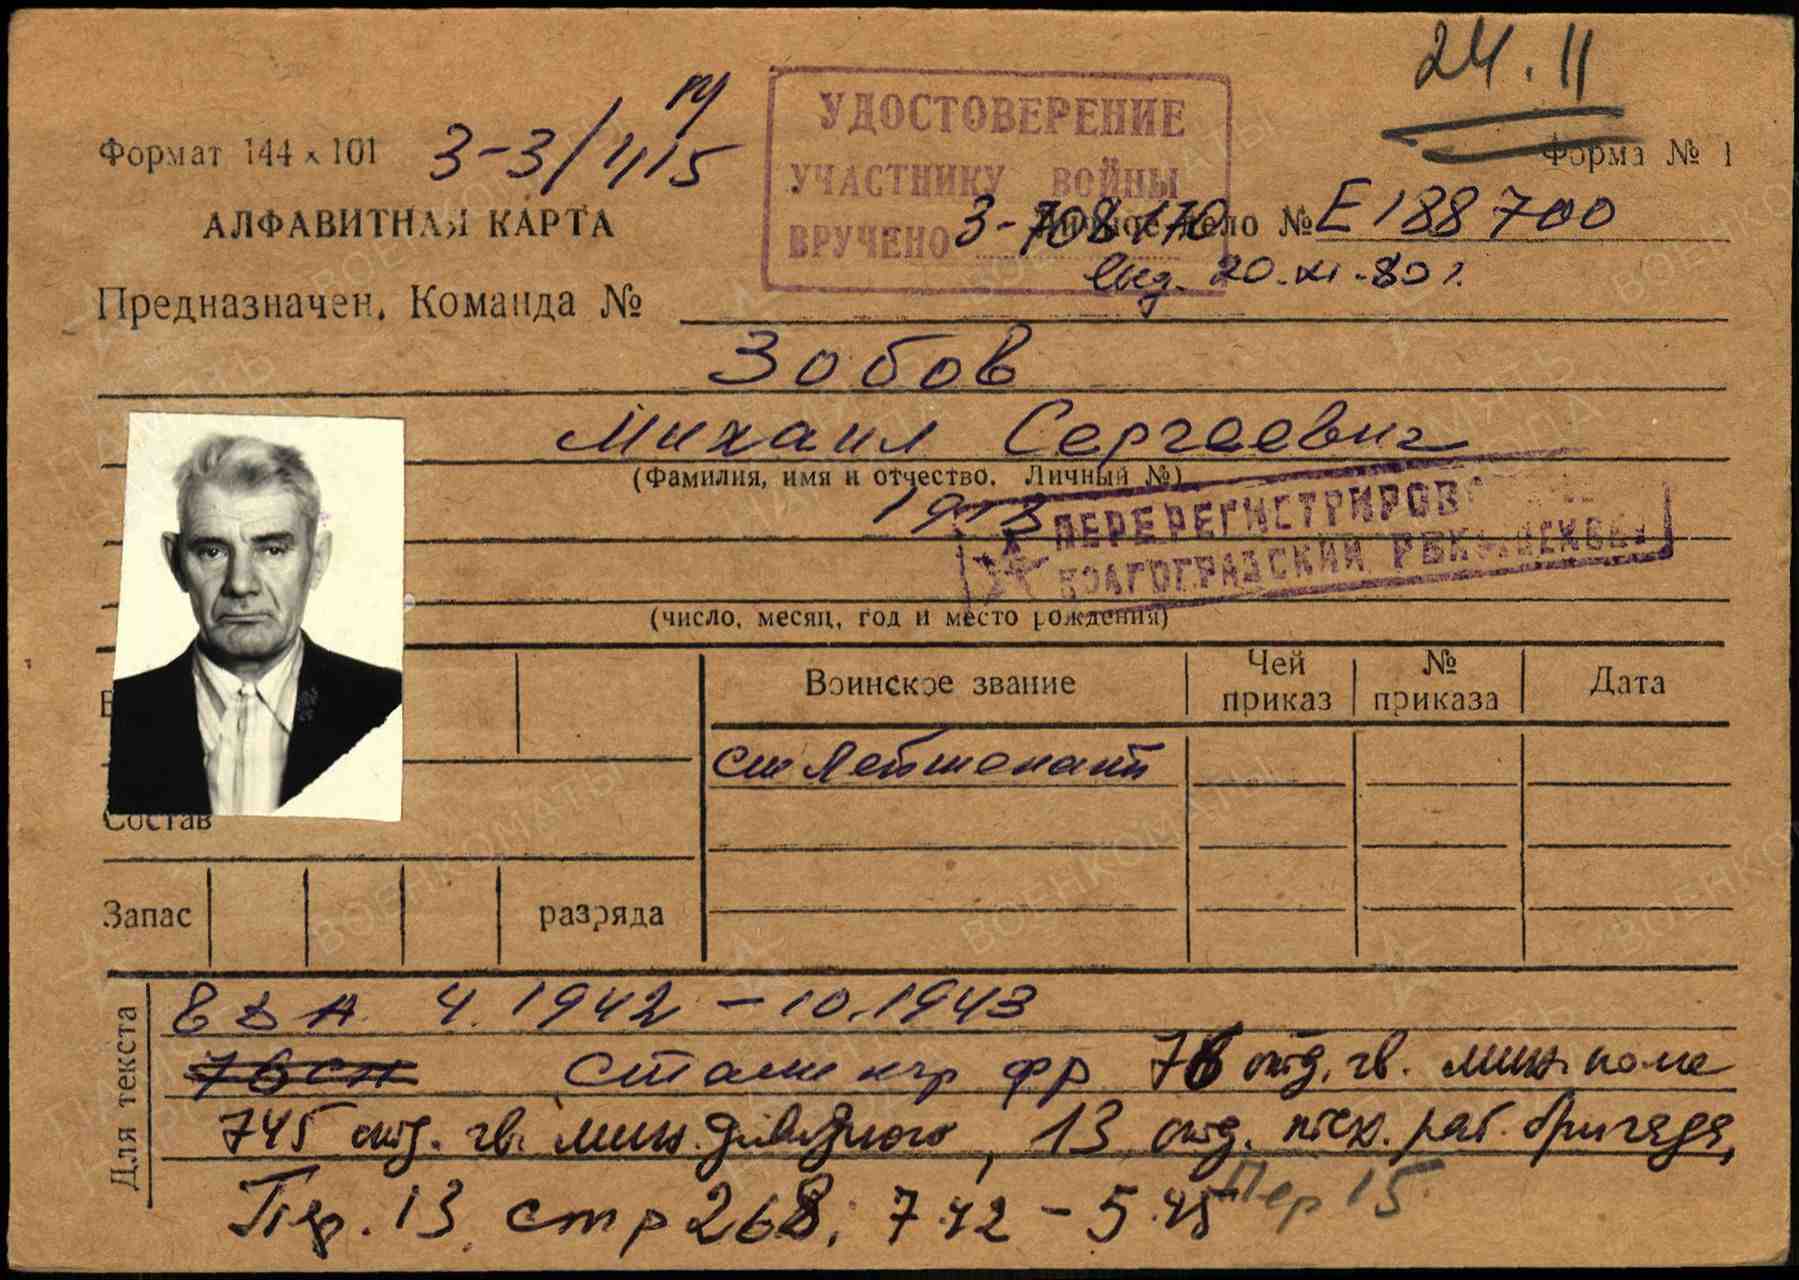 24.11
Формат 144 х 101 3-3/415 Форма № 1
УДОСТОВЕРЕНИЕ
УЧАСТНИКУ ВОЙНЫ
ВРУЧЕНО
АЛФАВИТНАЯ КАРТА 3-708170 Личное дело № Е 188700
20.XI.80 г.
Предназначен. Команда №
Зобов
Михаил Сергеевич
(Фамилия, имя и отчество. Личный №)
1913
ПЕРЕРЕГИСТРИРОВ
ВОЛГОГРАДСКИЙ РВК г. МОСКВЫ
(число, месяц, год и место рождения)
Воинское звание Чей приказ № приказа Дата
ст лейтенант
Состав
Запас разряда
Для текста
4.1942 – 10.1943
76 сп фр 76 отд. гв. мин. полк
745 отд. гв. мин. дивизиона, 13 отд. бригада,
Пер. 13 стр 268. 7.42 – 5.45 Пер 15
ПАМЯТЬ НАРОДА
ВОЕНКОМАТЫ